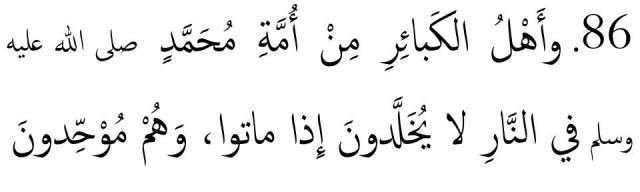 86. وأَهْلُ الكَبائِرِ مِنْ أُمَّةِ مُحَمَّدٍ صلى الله عليه
وسلم في النَّارِ لا يُخَلَّدونَ إِذا ماتوا، وَهُمْ مُوْحِّدونَ